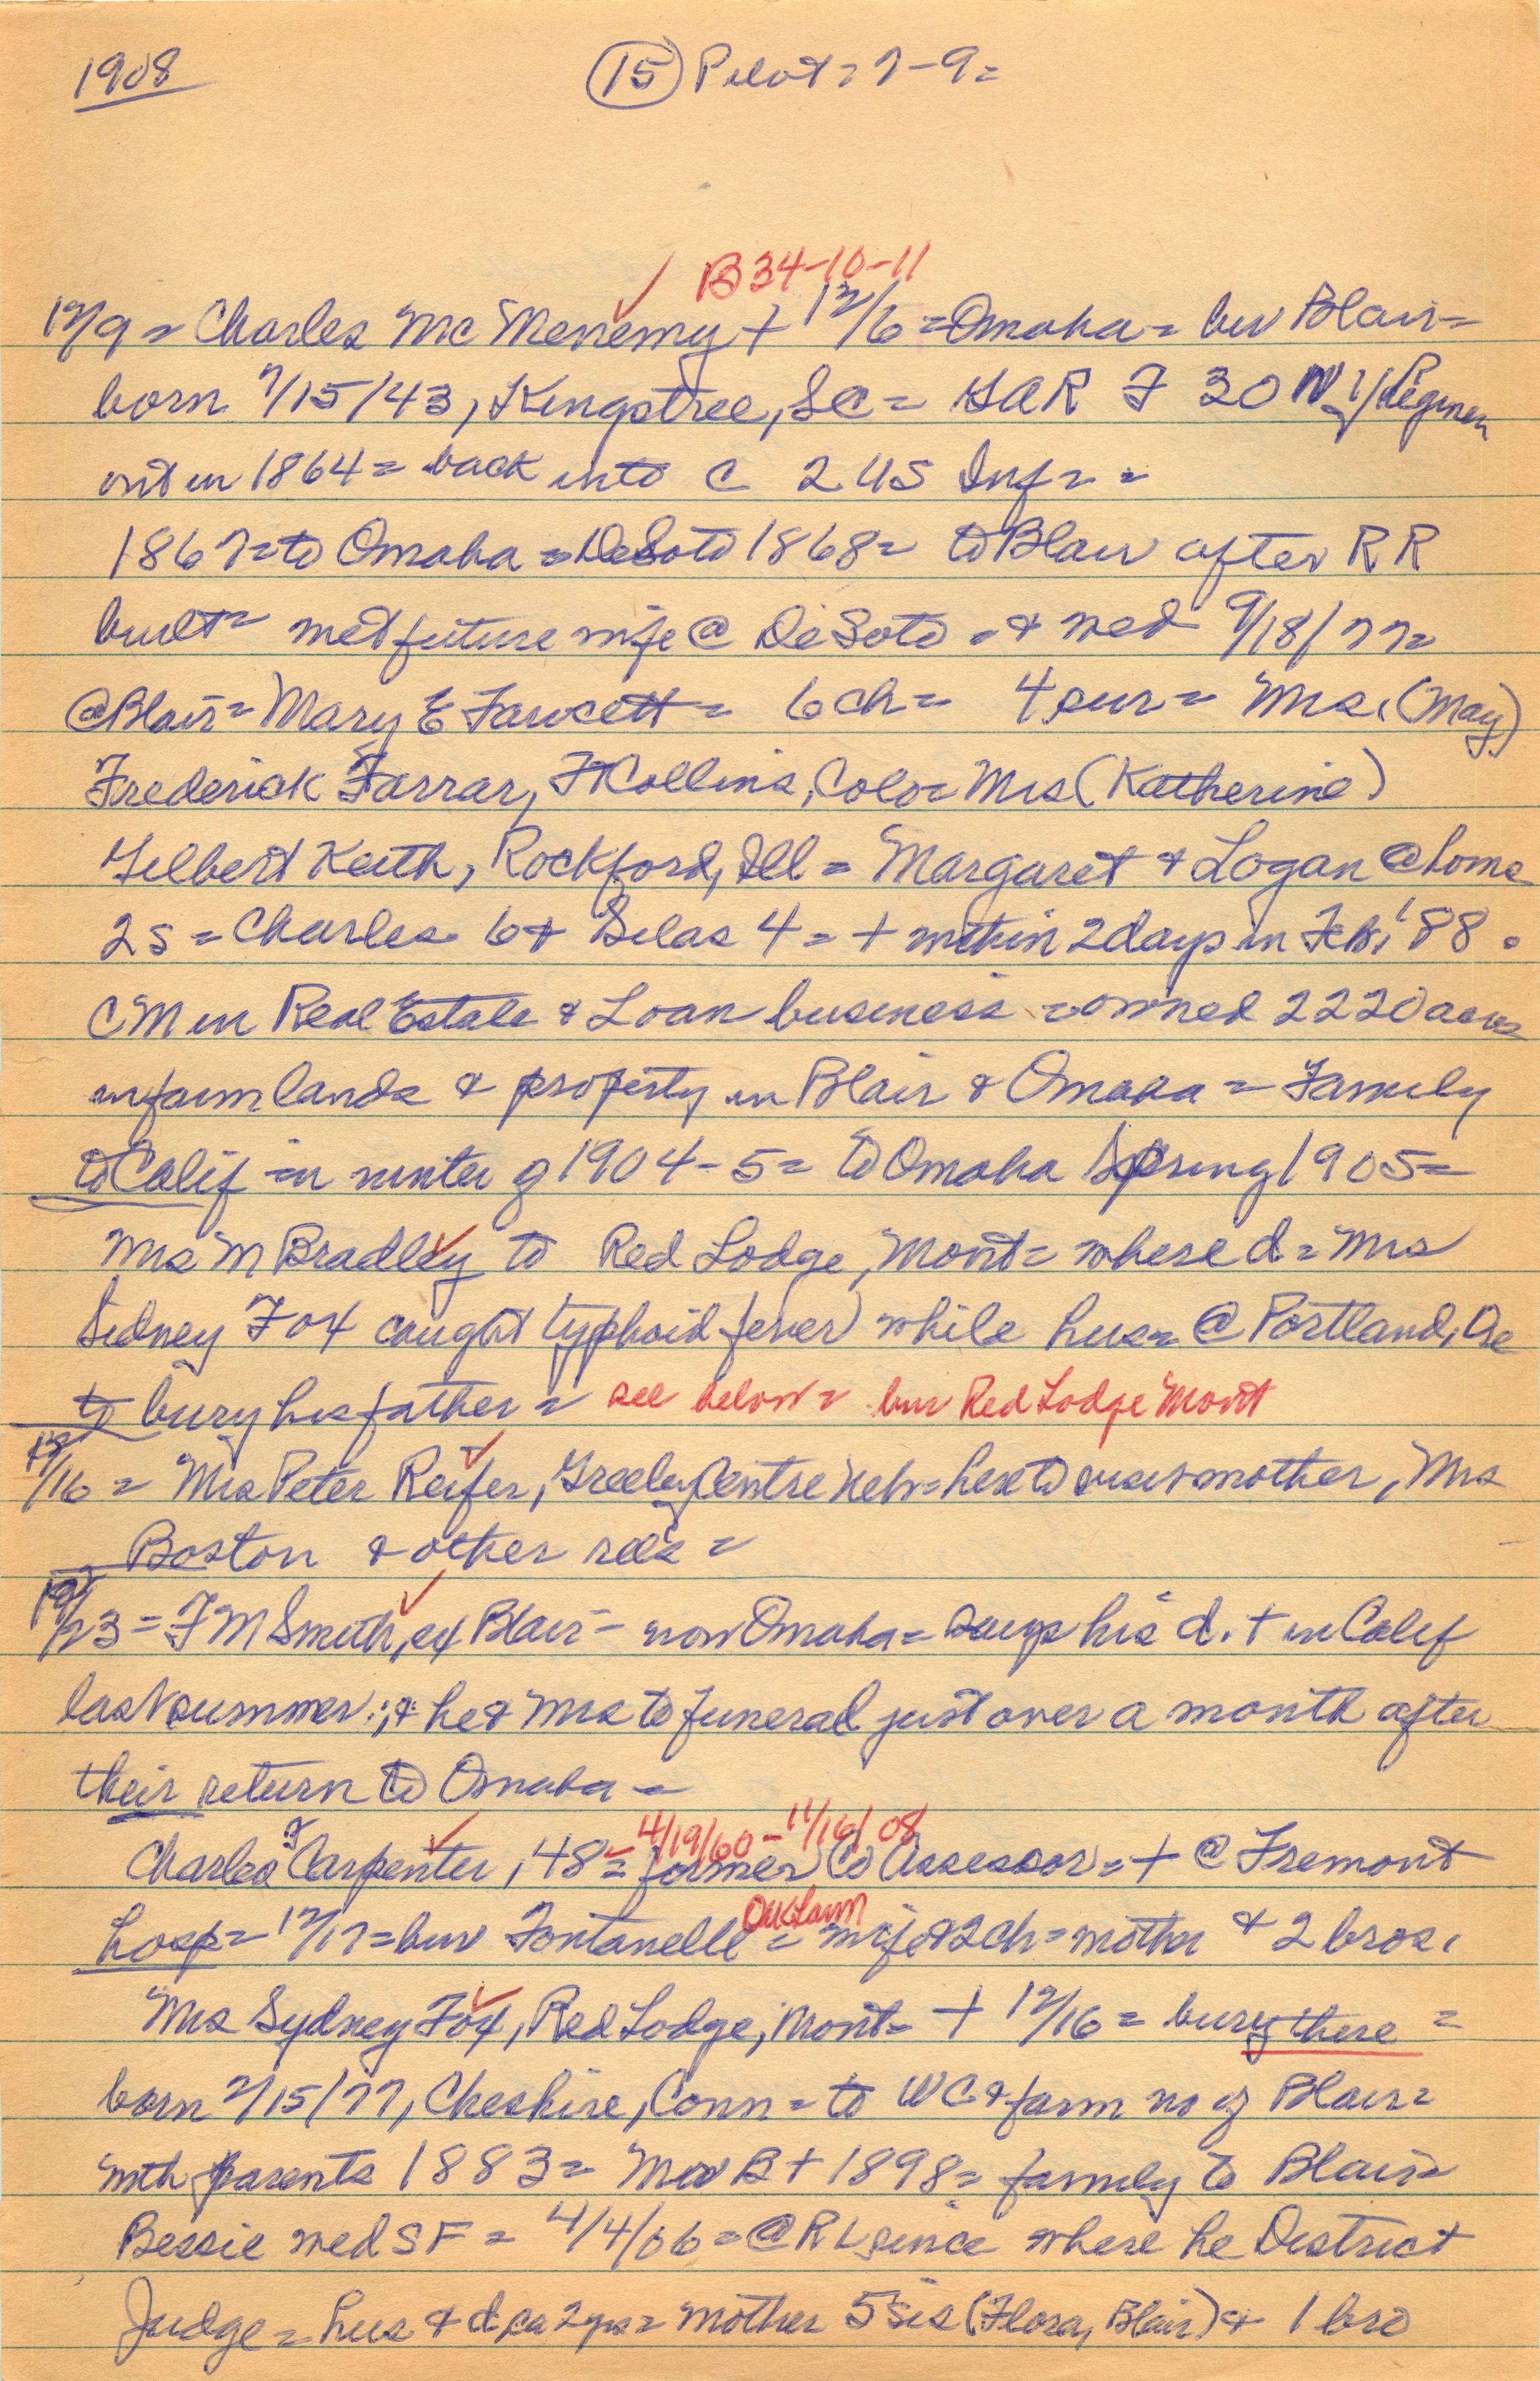 1908 (15) Pilot = 7-9 =
B 34-10-11
12/9 = Charles McMenemy + 12/6 = Omaha = bur Blair =
born 7/15/43, Kingstree, SC = GAR F 30 NY Regimen
out in 1864 = back into C 2 US Inf = =
1867 = to Omaha = DeSoto 1868 = to Blair after RR
built = met future wife @ DeSoto = & wed 9/18/77 =
@ Blair = Mary E Fawcett = 6 ch = 4 sur = Mrs. (May)
Frederick Farrar, Ft Collins, Colo = Mrs (Katherine)
Gilbert Keith, Rockford, Ill = Margaret & Logan @ home
2s = Charles 6 & Silas 4 = + within 2 days in Feb. '88 =
CM in Real Estate & Loan business = owned 2220 acres
in farm lands & property in Blair & Omaha = Family
to Calif in winter of 1904-5 = to Omaha Spring 1905 =
Mrs M Bradley to Red Lodge, Mont = where d = Mrs
Sidney Fox caught typhoid fever while hus = @ Portland, Ore
to bury his father = see below = bur Red Lodge Mont
12/16 = Mrs Peter Reifer, Greeley Centre Neb = here to visit mother, Mrs
Boston & other rel's =
12/23 = F M Smith, ex Blair - now Omaha = says his d. + in Calif
last summer; & he & Mrs to funeral just over a month after
their return to Omaha =
4/19/60 - 11/16/08
Charles F Carpenter, 48 = former Co Assessor = + @ Fremont
Hosp = 12/17 = bur Fontanelle Oak Lawn = wife & 2 ch = mother & 2 bros.
Mrs Sydney Fox, Red Lodge, Mont = + 12/16 = bury there =
born 2/15/77, Cheshire, Conn = to WC & farm no of Blair =
with parents 1883 = Mr B + 1898 = family to Blair =
Bessie wed SF = 4/4/06 = @ RL since where he District
Judge = hus & d ca 2 yrs = mother 5 sis (Flora, Blair) & 1 bro